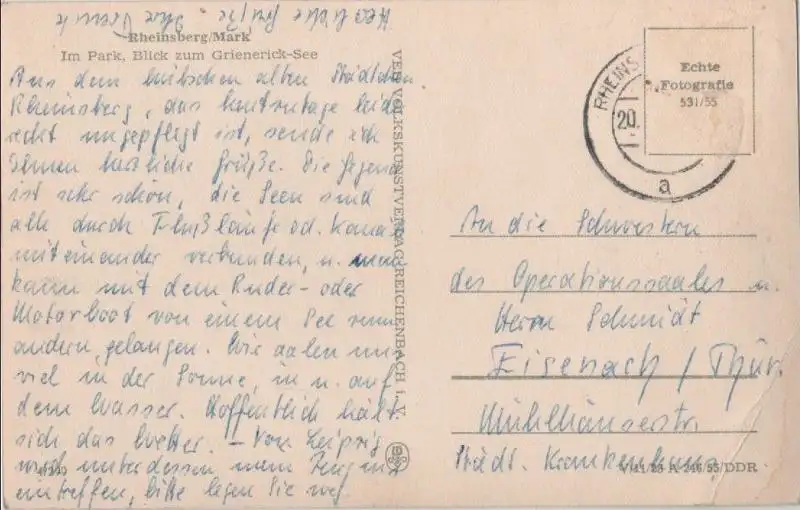 Rheinsberg/Mark
Im Park, Blick zum Grienerick-See
Aus dem hübschen alten Städtchen
Rheinsberg, das heutzutage leider
recht ungepflegt ist, sende ich
Ihnen herzliche Grüße. Die Gegend
ist sehr schön, die Seen sind
alle durch Flußläufe od. Kanäle
miteinander verbunden, u. man
kann mit dem Ruder- oder
Motorboot von einem See zum
andern gelangen. Wir aalen uns
viel in der Sonne, in u. auf
dem Wasser. Hoffentlich hält
sich das Wetter. – Von Leipzig
wird unterdessen mein Zeugnis
eintreffen, bitte legen Sie weg
Herzliche Grüße
VEB VOLKSKUNSTVERLAG REICHENBACH i. V.
Echte
Fotografie
531/55
RHEINS
20.
a
An die Schwestern
des Operationssaales u.
Herrn Schmidt
Eisenach / Thür.
Mühlhäuserstr.
Städt. Krankenhaus
A 246/55/DDR